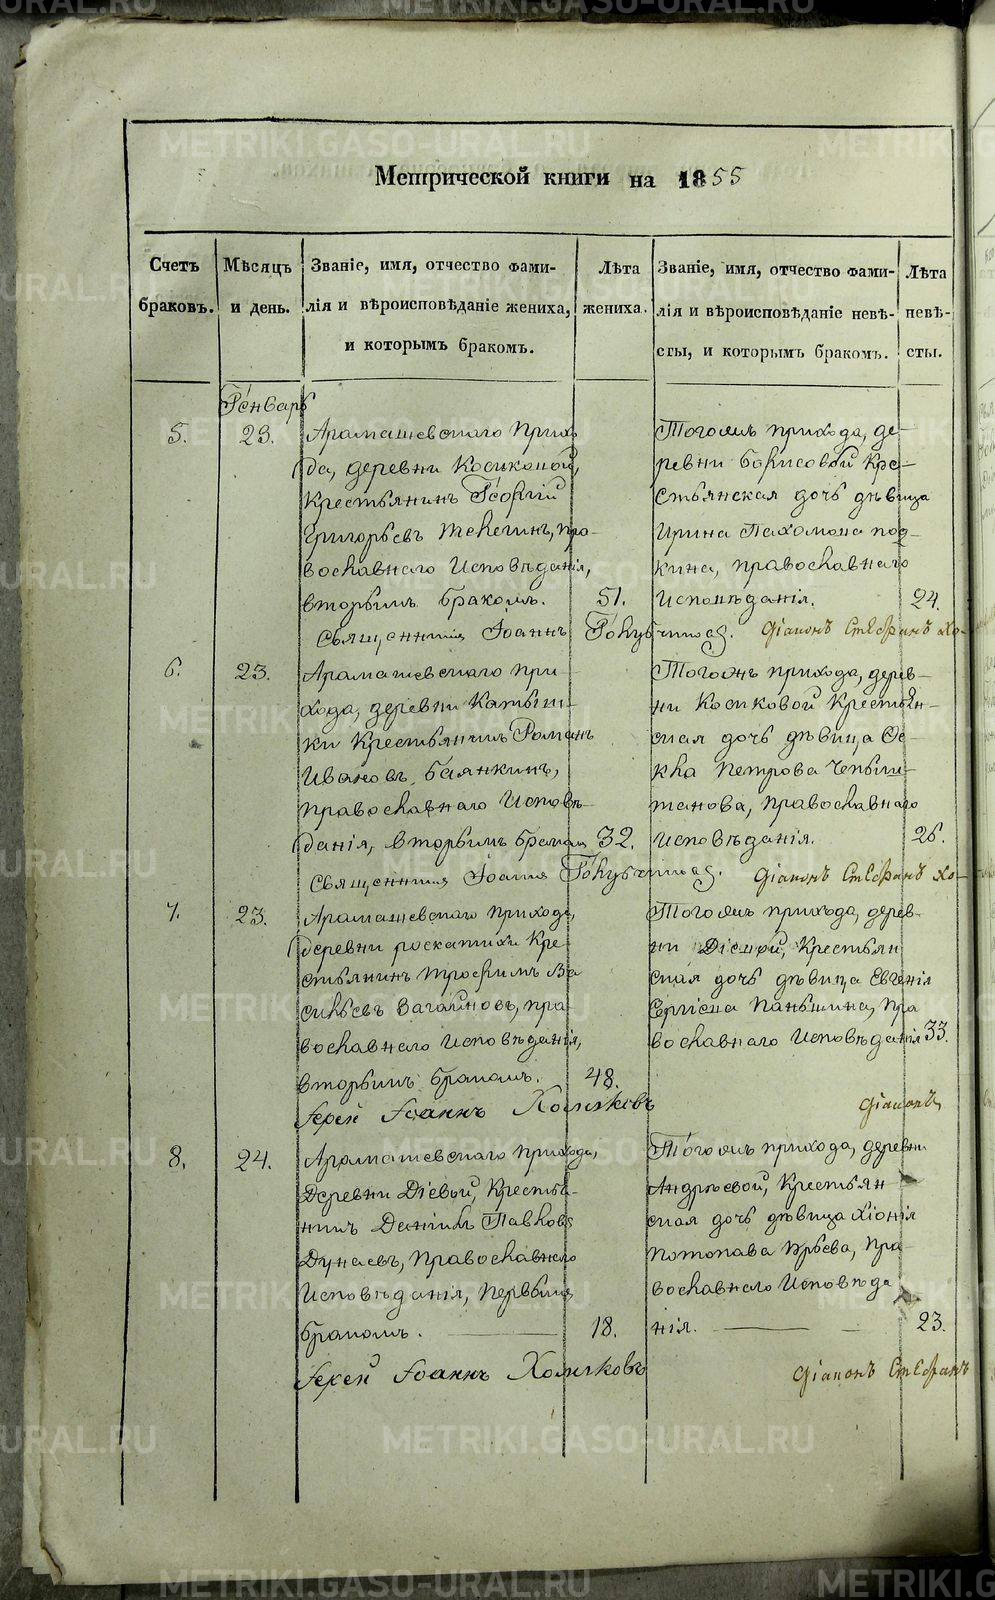 METRIKI.GASO-URAL.RU
Метрической книги на 1855
Счетъ браковъ.
Мѣсяцъ и день.
Званіе, имя, отчество фами-
лія и вѣроисповѣданіе жениха,
и которымъ бракомъ.
Лѣта жениха.
Званіе, имя, отчество фами-
лія и вѣроисповѣданіе невѣ-
сты, и которымъ бракомъ.
Лѣта невѣ-
сты.
Генварь
5.
23.
Арамашевскаго прихо
да, деревни Косиковой,
крестьянинъ Георгій
Григорьевъ Телегинъ, пра-
вославнаго исповѣданія,
вторымъ бракомъ.
51.
Тогожъ прихода, де-
ревни Борисовой кре-
стьянская дочь дѣвица
Ирина Пахомова
православнаго
исповѣданія.
24.
Священникъ Іоаннъ
Діаконъ Стефанъ Хо-
6.
23.
Арамашевскаго при-
хода, деревни
крестьянинъ Романъ
Ивановъ Баянкинъ,
православнаго исповѣ-
данія, вторымъ бракомъ
32.
Тогожъ прихода, дерев-
ни Косиковой крестьян-
ская дочь дѣвица Ѳе-
кла Петрова
православнаго
исповѣданія.
26.
Священникъ Іоаннъ
Діаконъ Стефанъ Хо-
7.
23.
Арамашевскаго прихода,
деревни Роскатихи кре-
стьянинъ Трофимъ Ва
сильевъ Загайновъ, пра-
вославнаго исповѣданія,
вторымъ бракомъ.
48.
Тогожъ прихода, дерев-
ни Діевой, крестьян
ская дочь дѣвица Евгенія
Паньшина, пра
вославнаго исповѣданія
33.
Іерей Іоаннъ Холмлковъ
Діаконъ
8.
24.
Арамашевскаго прихода,
деревни Діевой, крестья-
нинъ Даніилъ Павловъ
Дунаевъ, православнаго
исповѣданія, первымъ
бракомъ.
18.
Тогожъ прихода, деревни
Андрѣевой, крестьян
ская дочь дѣвица Хіонія
Потопава Юрьева, пра-
вославнаго исповѣда
нія.
23.
Іерей Іоаннъ Холмлковъ
Діаконъ Стефанъ